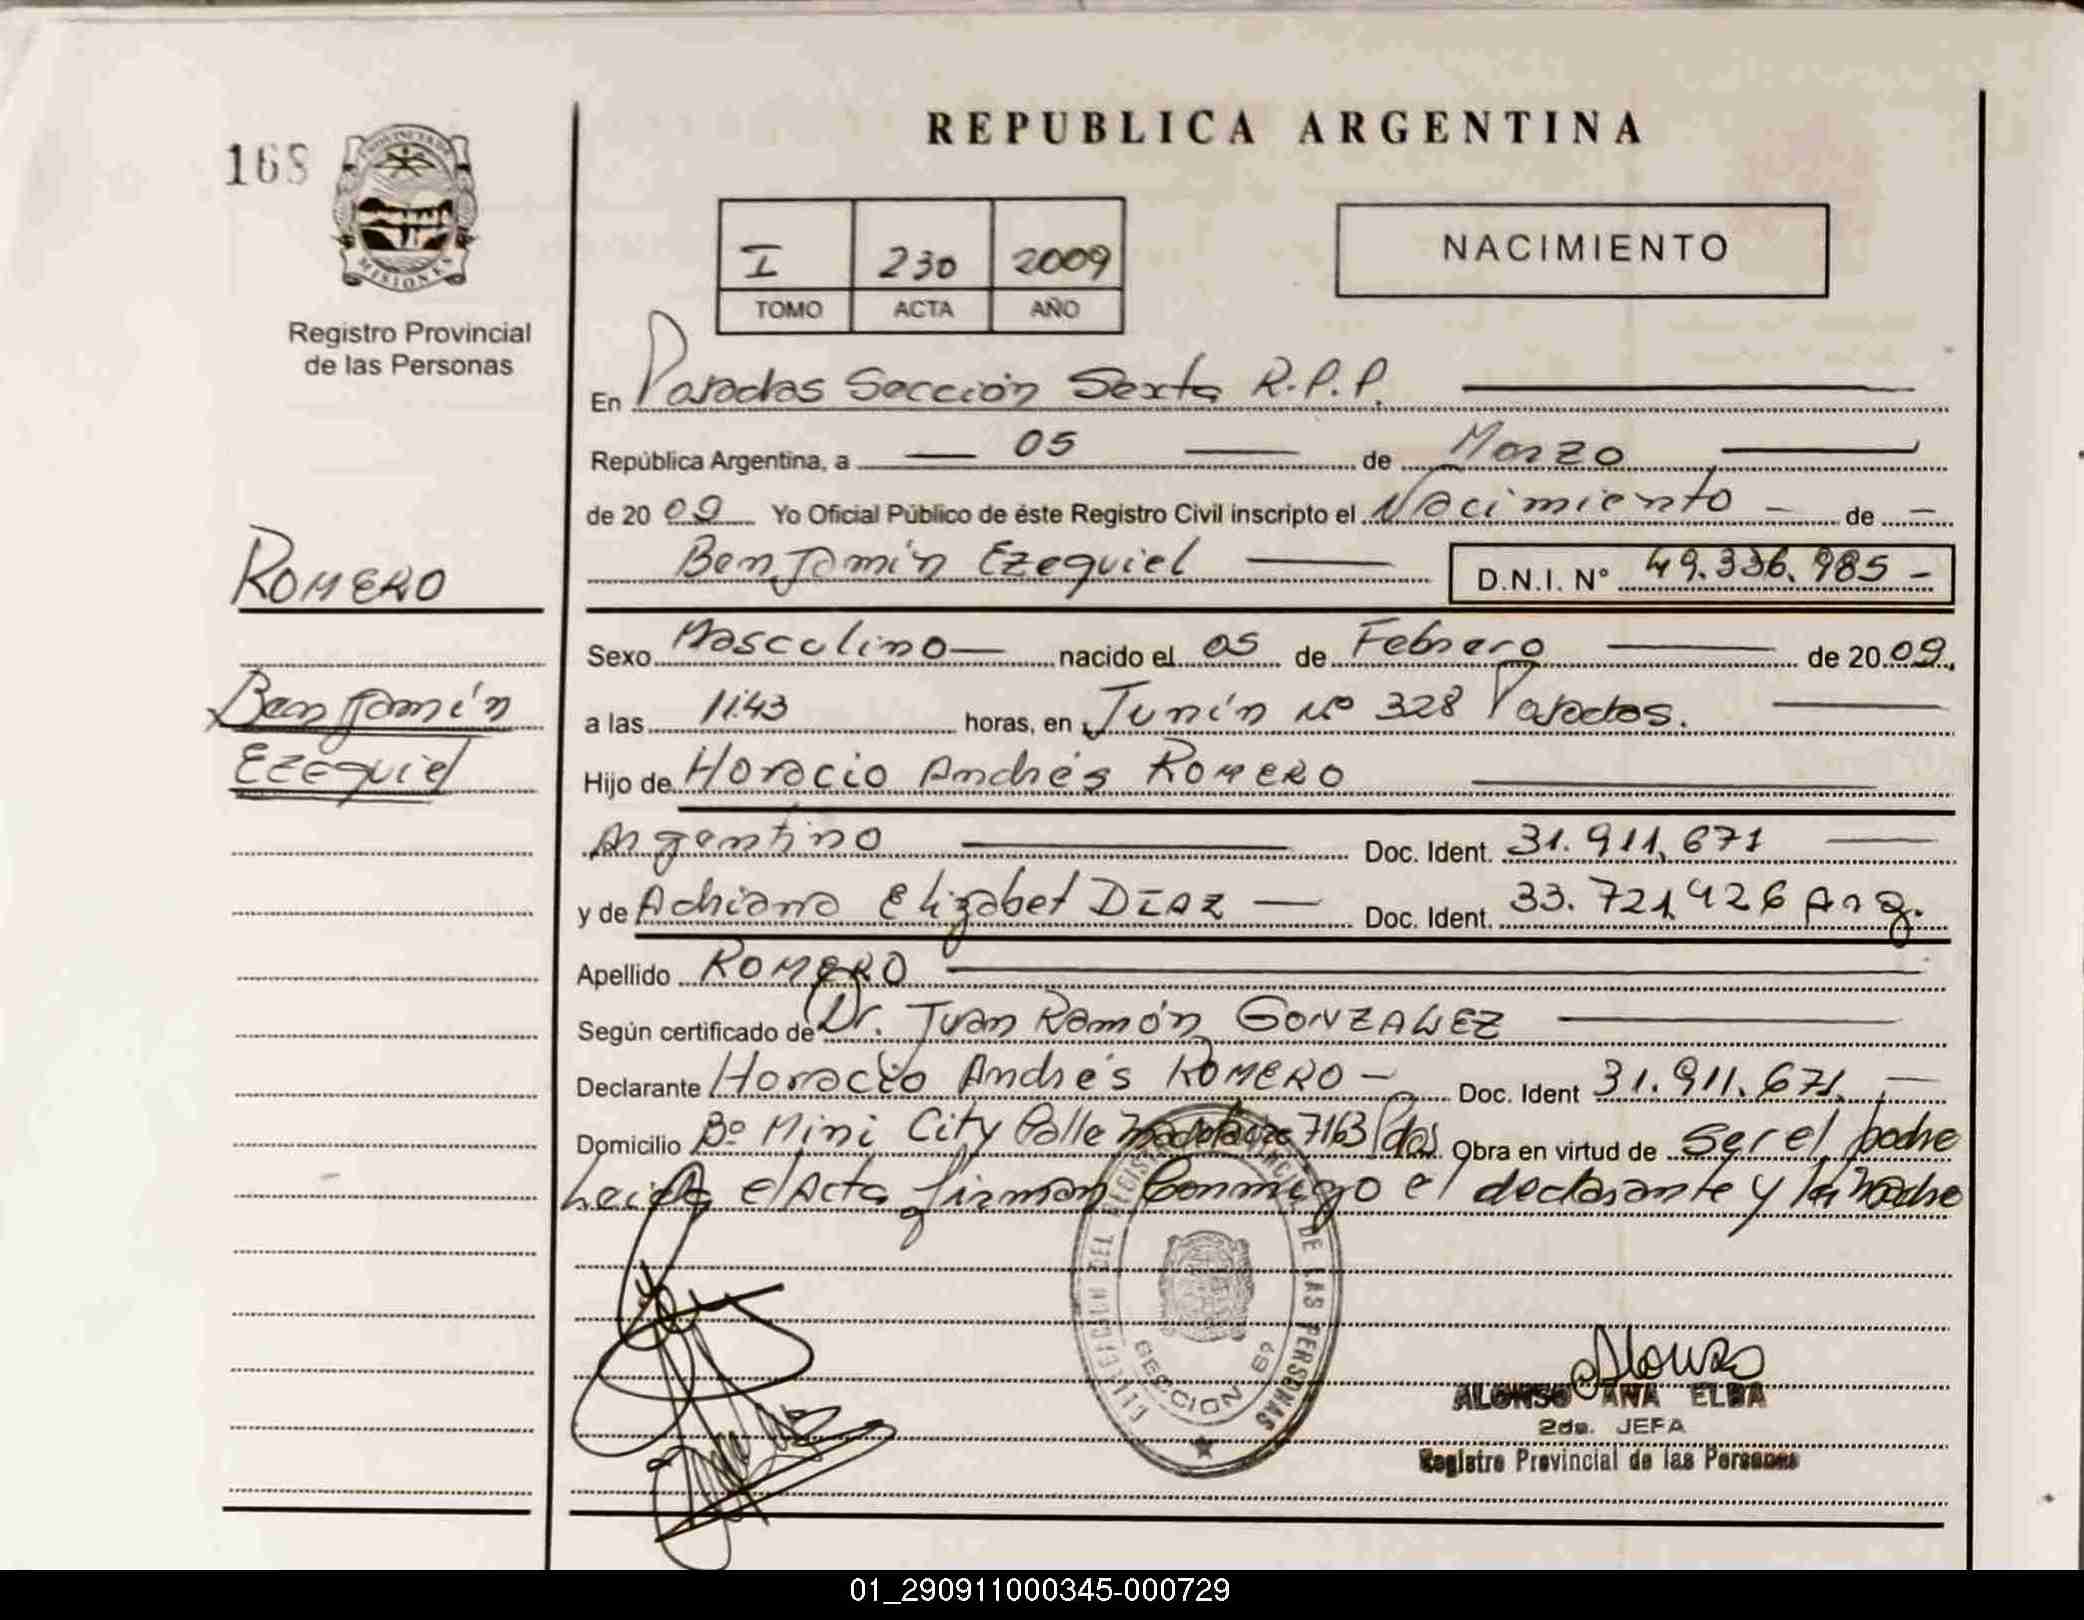 REPUBLICA ARGENTINA
168
PROVINCIA DE
MISIONES
Registro Provincial
de las Personas
I 230 2009
TOMO ACTA AÑO
NACIMIENTO
En Posadas Sección Sexta R.P.P.
República Argentina, a 05 de Marzo
de 2009 Yo Oficial Público de éste Registro Civil inscripto el Nacimiento - de -
Benjamín Ezequiel D.N.I. N° 49.336.985 -
ROMERO
Benjamín
Ezequiel
Sexo Masculino nacido el 05 de Febrero de 2009,
a las 11:43 horas, en Junín Nº 328 Posadas.
Hijo de Horacio Andrés ROMERO
Argentino Doc. Ident. 31.911.671
y de Adriana Elizabet DIAZ - Doc. Ident. 33.721.426 Arg.
Apellido ROMERO
Según certificado de Dr. Juan Ramón GONZALEZ
Declarante Horacio Andrés ROMERO - Doc. Ident 31.911.671.
Domicilio Bº Mini City Calle 7163 Pdas Obra en virtud de ser el padre
Leida el Acta firman Conmigo el declarante y la madre
DIRECCION DEL REGISTRO PROVINCIAL DE LAS PERSONAS
SECCION 6ª
Alonso
ALONSO ANA ELBA
2da. JEFA
Registro Provincial de las Personas
01_290911000345-000729